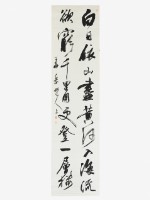 白日依山盡黄河入海流
欲窮千里目更登一層樓